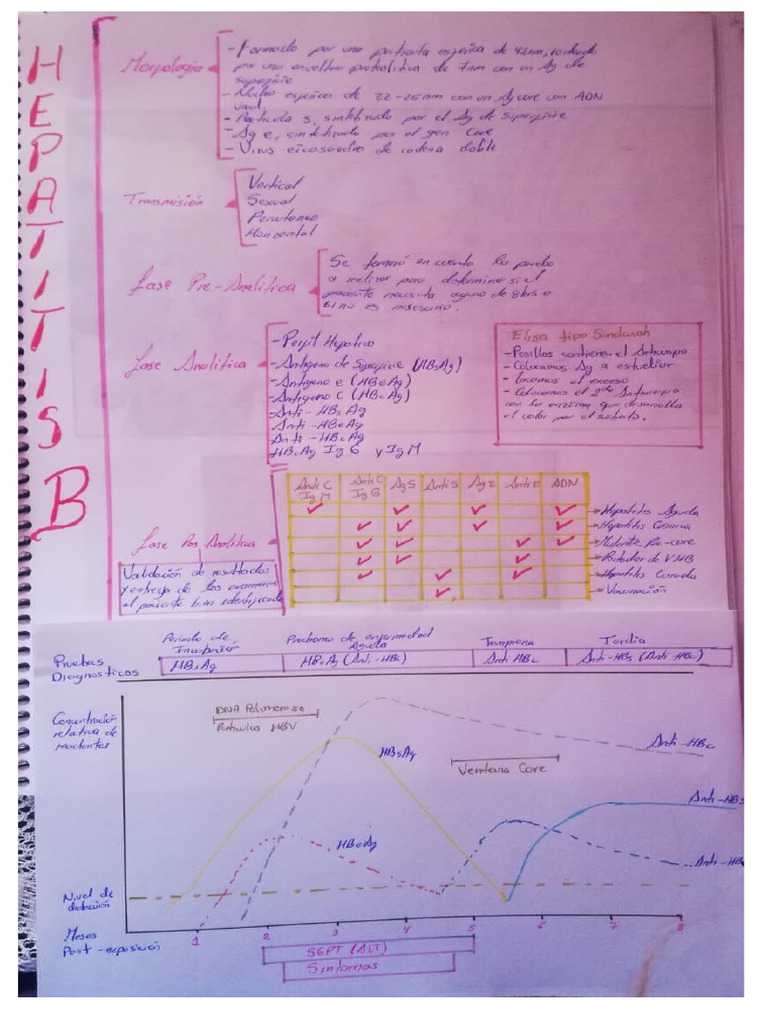 HEPATITIS B
Morfología
- Formado por una partícula esférica de 42nm, rodeado
por una envoltura proteolítica de 7nm con un Ag de
superficie
- Núcleo esférico de 22-25nm con un Ag core con ADN
- Partícula S, sintetizado por el Ag de superficie
- Ag e, sintetizado por el gen core
- Virus eicosaedro de cadena doble
Transmisión
Vertical
Sexual
Percutanea
Horizontal
fase Pre-Analítica
Se tomará en cuenta la prueba
a realizar para determinar si el
paciente necesita ayuno de 8hrs o
si no es necesario.
fase Analítica
- Perfil Hepático
- Antígeno de Superficie (HBsAg)
- Antígeno e (HBeAg)
- Antígeno C (HBcAg)
- Anti-HBsAg
- Anti-HBeAg
- Anti-HBcAg
HBcAg Ig G y Ig M
Elisa tipo Sandwich
- Posillos contiene el Anticuerpo
- Colocamos Ag a estudiar
- el exceso
- Colocamos el 2do Anticuerpo
con la enzima que desarrolla
el color por el sustrato.
fase Pos Analítica
Validación de resultados
y entrega de los examenes
al paciente bien identificado
Anti C Ig M
Anti C Ig G
Ag S
Anti S
Ag E
Anti E
ADN
Hepatitis Aguda
Hepatitis Cronica
Mutante Pre-core
Portador de VHB
Hepatitis Curada
Vacunación
Pruebas
Diagnosticos
Periodo de
Incubación
Prodromo de enfermedad
Aguda
Temprana
Tardia
HBsAg
HBsAg (Anti-HBc)
Anti HBc
Anti-HBs (Anti HBc)
Concentración
relativa de
reactantes
DNA Polimerasa
Particulas HBV
HBsAg
Anti-HBc
Ventana Core
Anti-HBs
HBeAg
Anti-HB
Nivel de
detección
Meses
Post-exposición
1 2 3 4 5 6 7 8
SGPT (ALT)
Sintomas